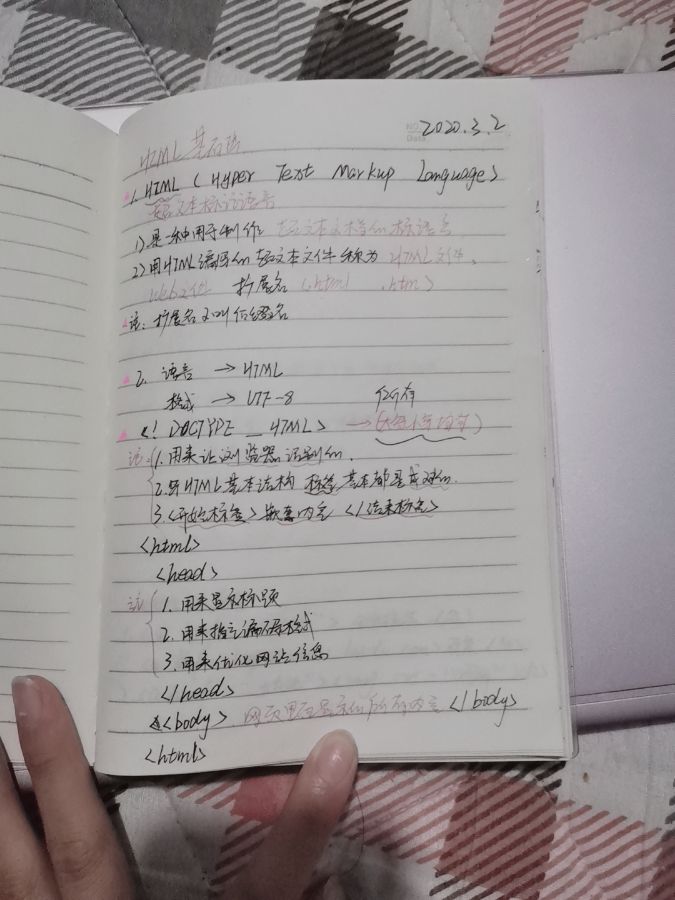 NO.
Date 2020.3.2
HTML 基础
1. HTML ( Hyper Text Markup Language )
超文本标识语言
1) 是一种用于制作 超文本文档的标语言
2) 用HTML编写的超文本文件称为 HTML文件、
Web文件 扩展名 (.html .htm)
注: 扩展名又叫后缀名
2. 语言 → HTML
格式 → UTF-8 所有
<! DOCTYPE _ HTML> →
注: 1. 用来让浏览器识别的.
2. 跟HTML基本结构 标签 基本都是成对的.
3. <开始标签> 嵌套内容 </结束标签>
<html>
<head>
注 1. 用来显示标题
2. 用来指定编码格式
3. 用来优化网站信息
</head>
<body> 网页里面显示的所有内容 </body>
<html>